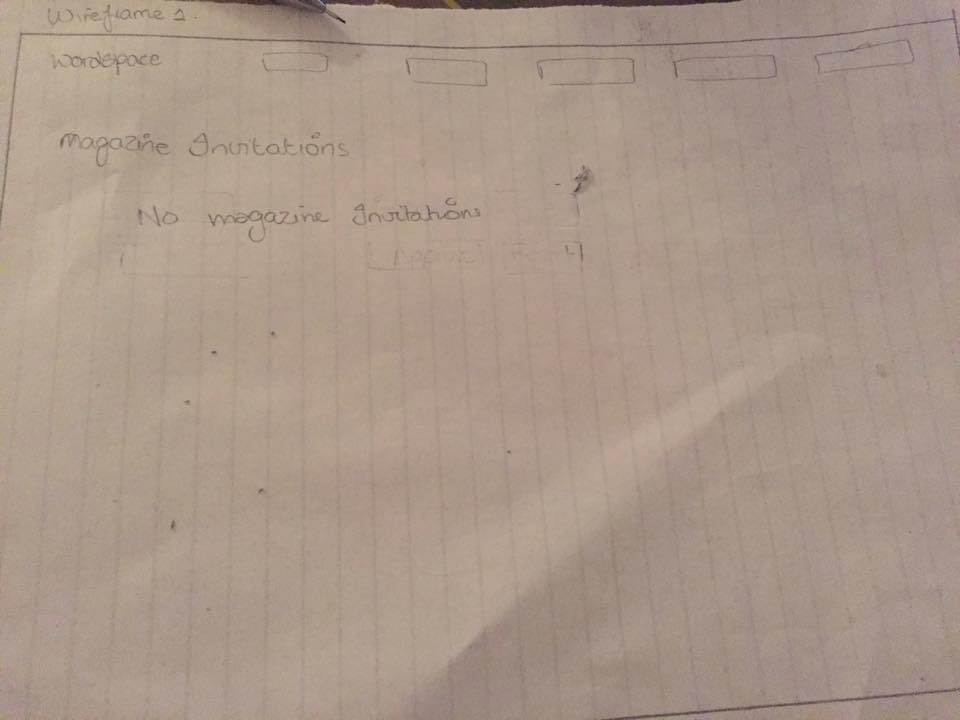 Wireframe 1.
Wordspace
Magazine Invitations
No magazine Invitations